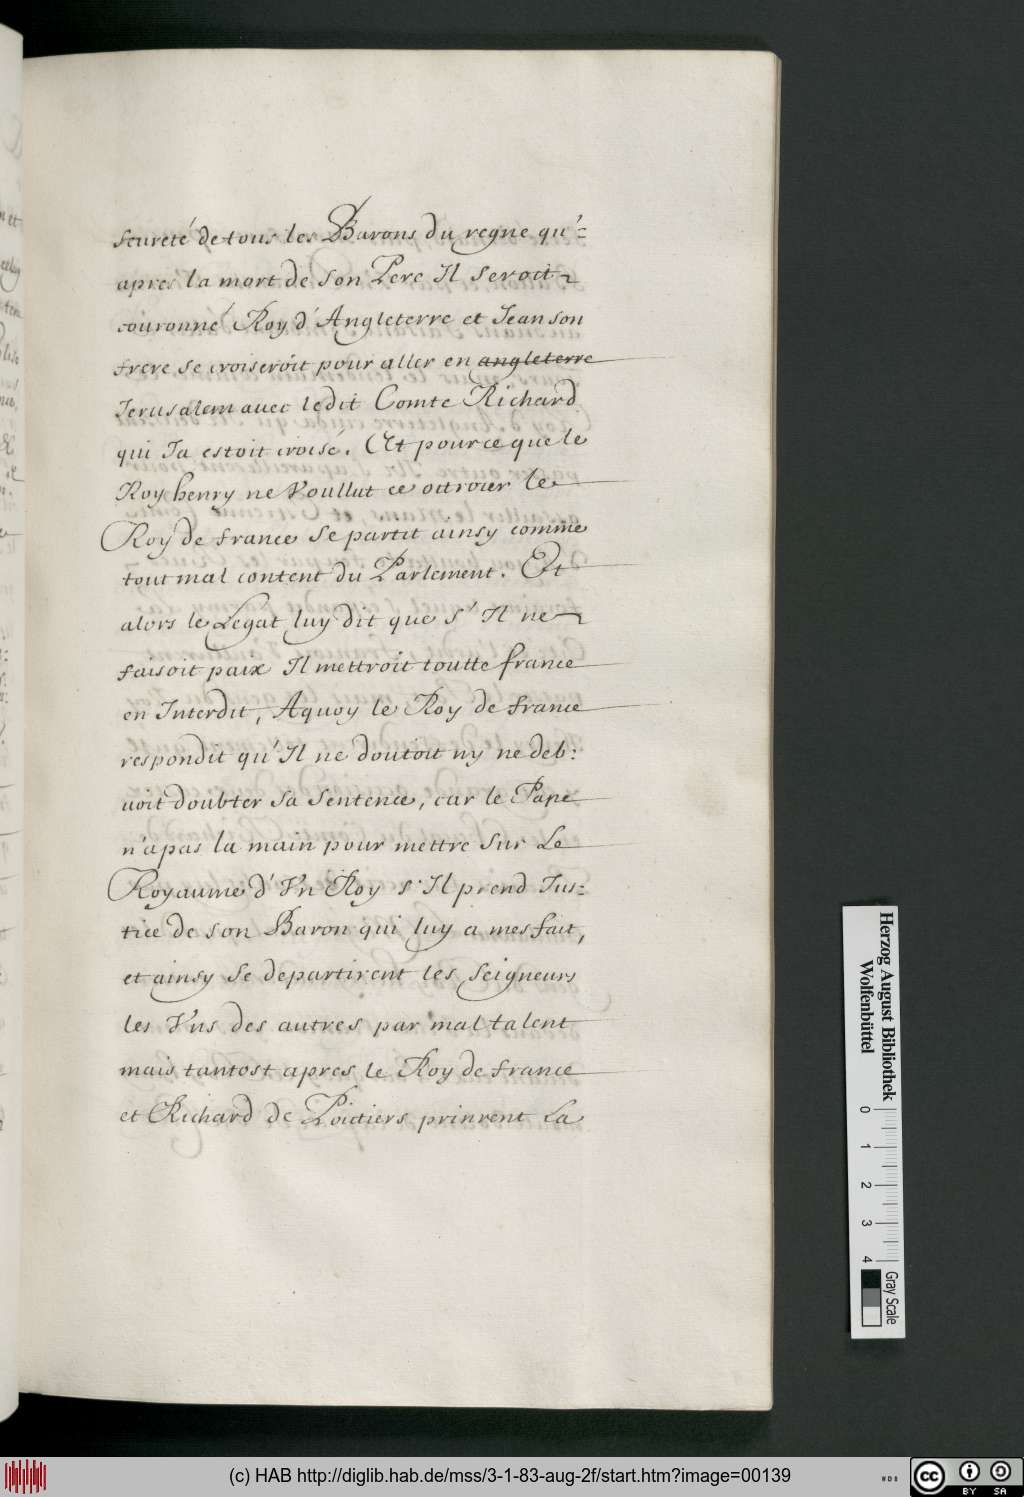 seureté de tous les Barons du regne qu'=
apres la mort de son Pere Il seroit
couronné Roy d'Angleterre et Jean son
frere se croiseroit pour aller en angleterre
Jerusalem auec ledit Comte Richard
qui Ja estoit croisé. Et pource que le
Roy henry ne Voullut ce octroier le
Roy de france se partit ainsy comme
tout mal content du Parlement. Et
alors le Legat luy dit que s'Il ne
faisoit paix Il mettroit toutte france
en Interdit, Aquoy le Roy de france
respondit qu'Il ne doutoit ny ne deb:
uoit doubter sa sentence, car le Pape
n'apas la main pour mettre sur Le
Royaume d'Vn Roy s'Il prend Jus=
tice de son Baron qui luy a mesfait,
et ainsy se departirent les seigneurs
les Vns des autres par mal talent
mais tantost apres le Roy de france
et Richard de Poictiers prinrent La
Herzog August Bibliothek
Wolfenbüttel
0 1 2 3 4
Gray Scale
(c) HAB http://diglib.hab.de/mss/3-1-83-aug-2f/start.htm?image=00139
cc BY SA